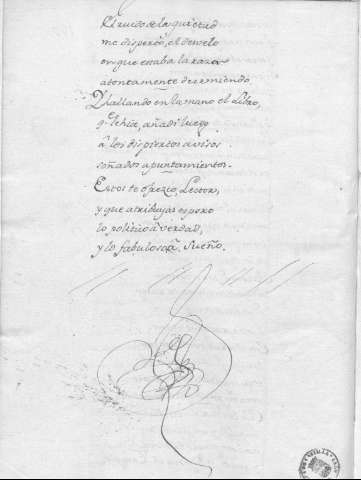 El ruido de la quietud
me dispertò, el desvelo
en que estaba la razon
atentamente durmiendo.
Y hallando en la mano el Libro,
añadi luego
â los dispiertos avisos
soñados apuntamientos.
Estos te ofrezco, Lector,
y que atribuyas espero
lo politico â verdad,
y lo fabuloso â Sueño.